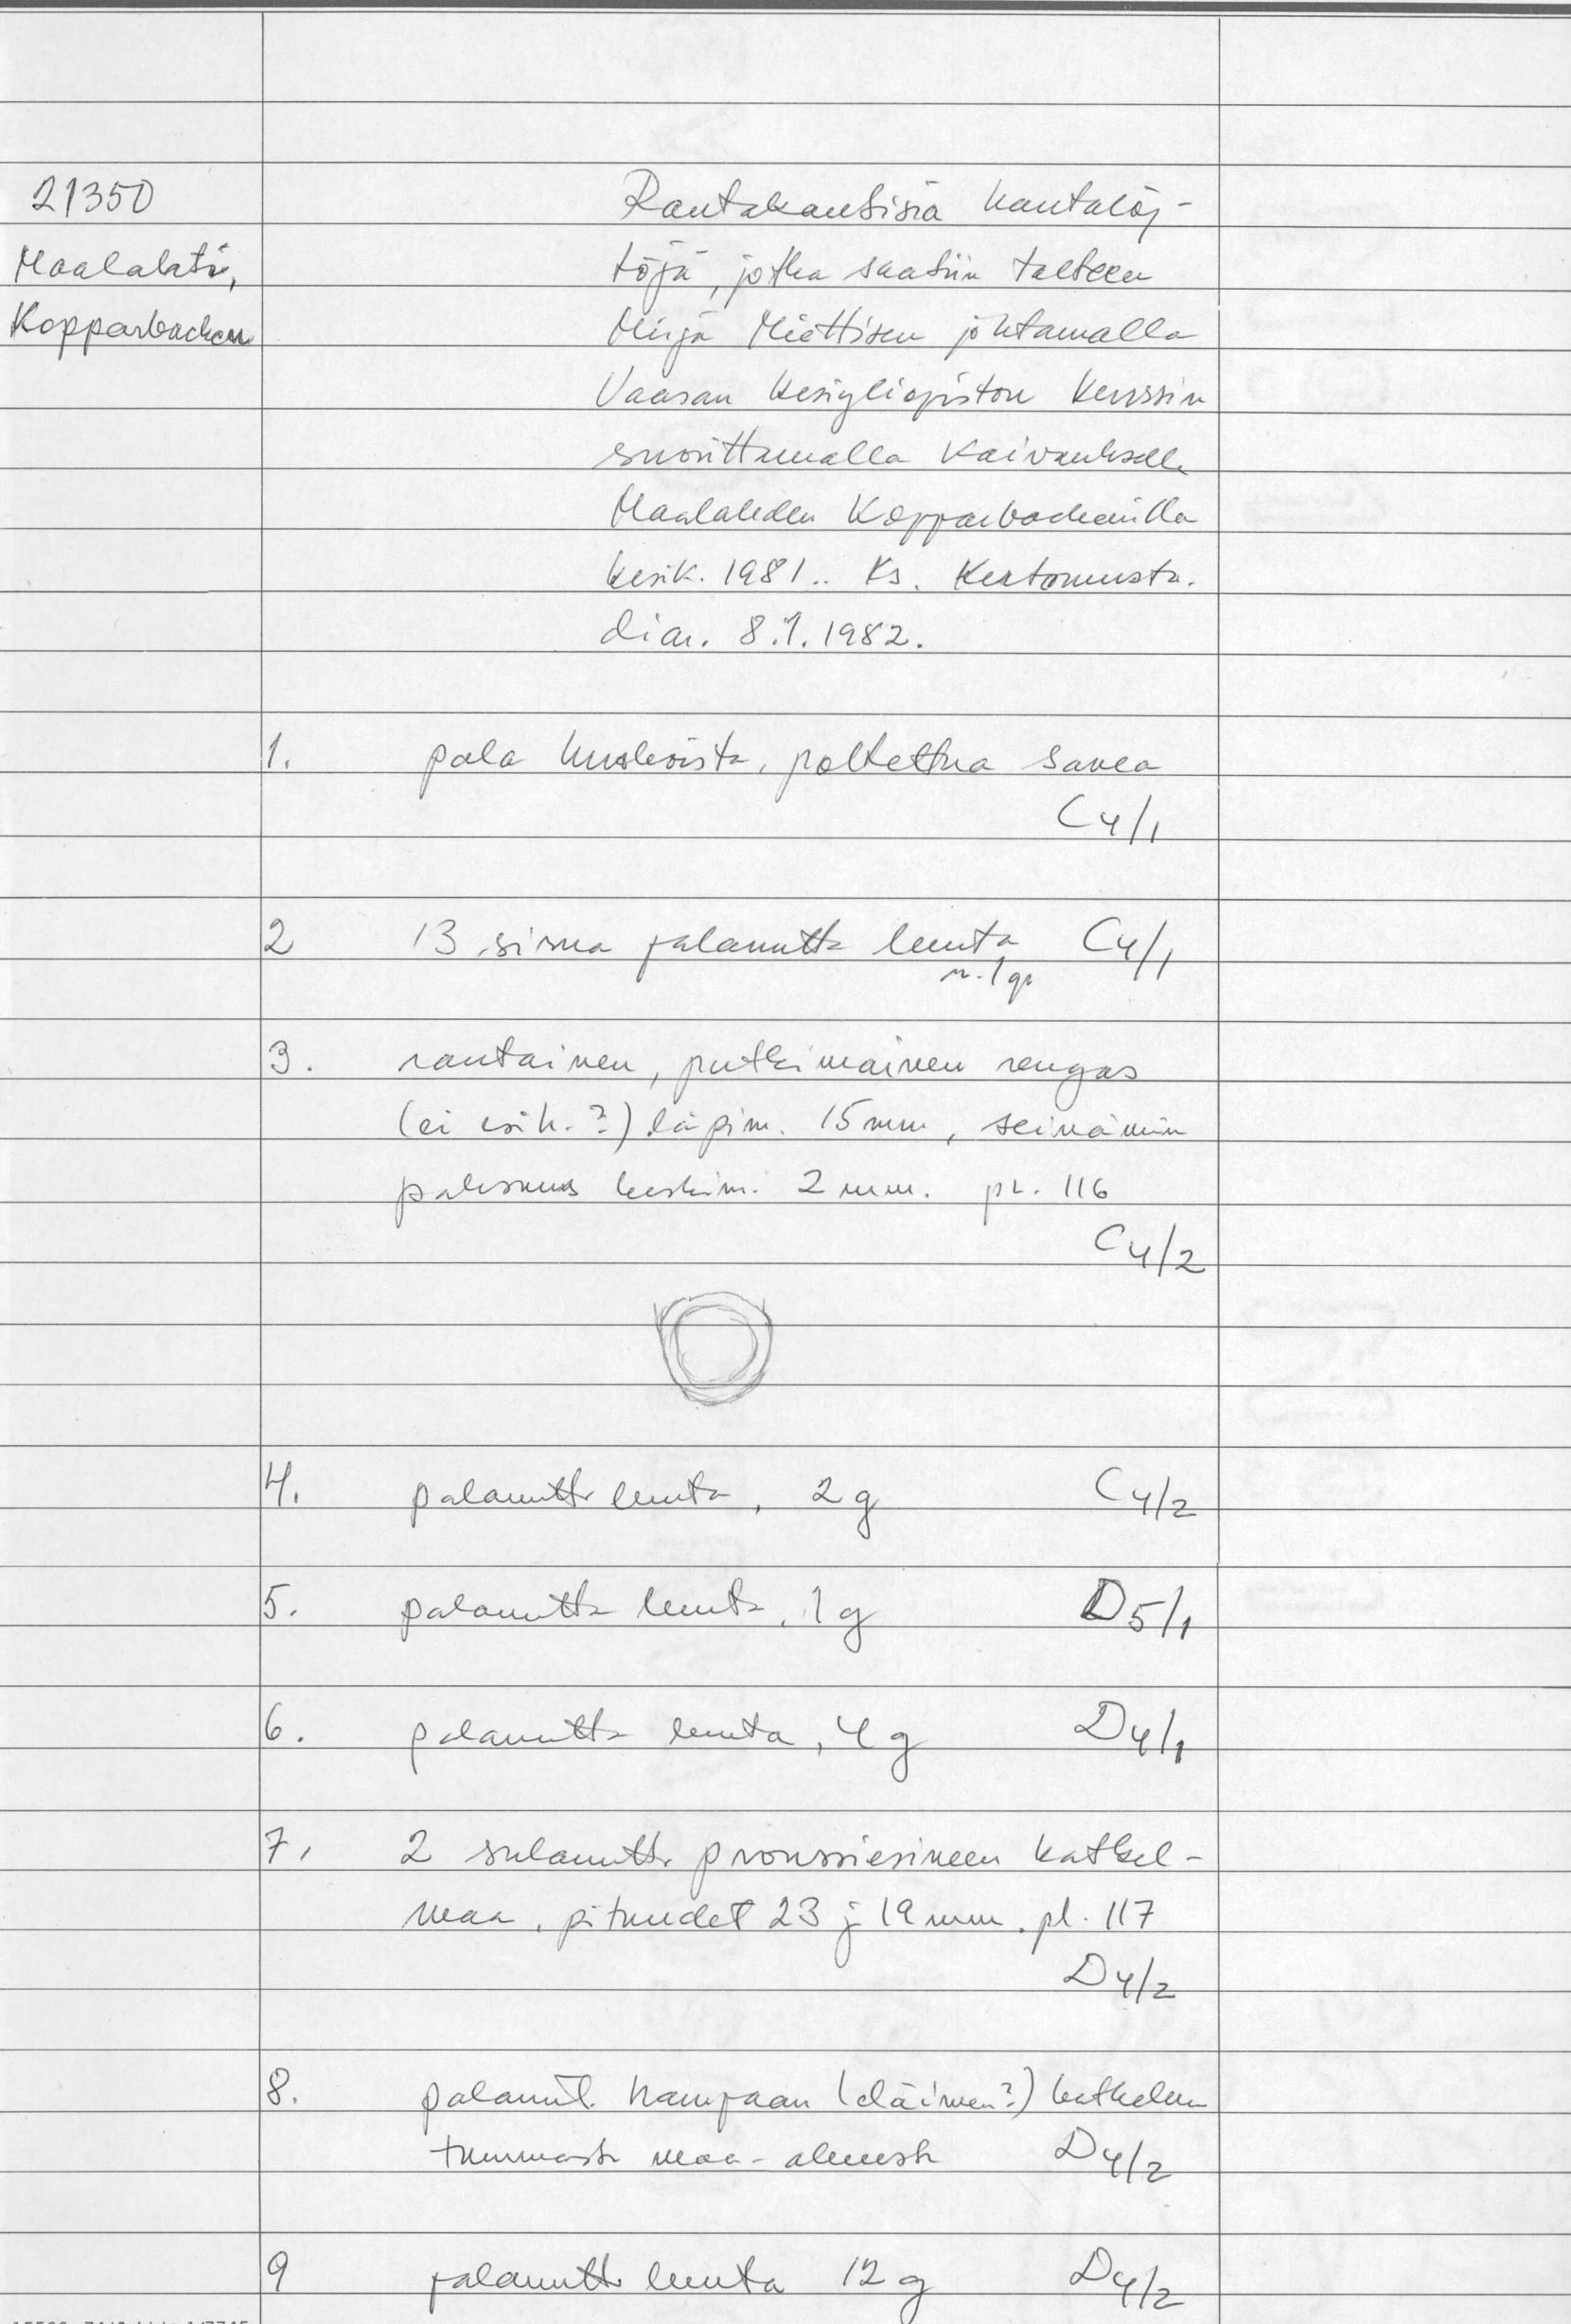 21350
Maalahti,
Kopparbacken
Rautakautisia hautalöy-
töjä, jotka saatiin talteen
Mirja Miettisen johtamalla
Vaasan kesäyliopiston kurssin
suorittamalla kaivauksella
Maalahden Kopparbackenilla
kesäk. 1981.. Ks. kertomusta.
diar. 8.1.1982.
1. pala huokoista, poltettua savea
C4/1
2 13 sirua palanutta luuta C4/1
n. 1 gr
3. rautainen, putkimainen rengas
(ei esih.?) läpim. 15 mm, seinämän
paksuus keskim. 2 mm. pl. 116
C4/2
4. palanutta luuta, 2 g C4/2
5. palanutta luuta, 1 g D5/1
6. palanutta luuta, 4 g D4/1
7. 2 sulanutta pronssiesineen katkel-
maa, pituudet 23 j 19 mm. pl. 117
D4/2
8. palanut hampaan (eläimen?) katkelma
tummasta maa-alueesta D4/2
9 palanutta luuta 12 g D4/2